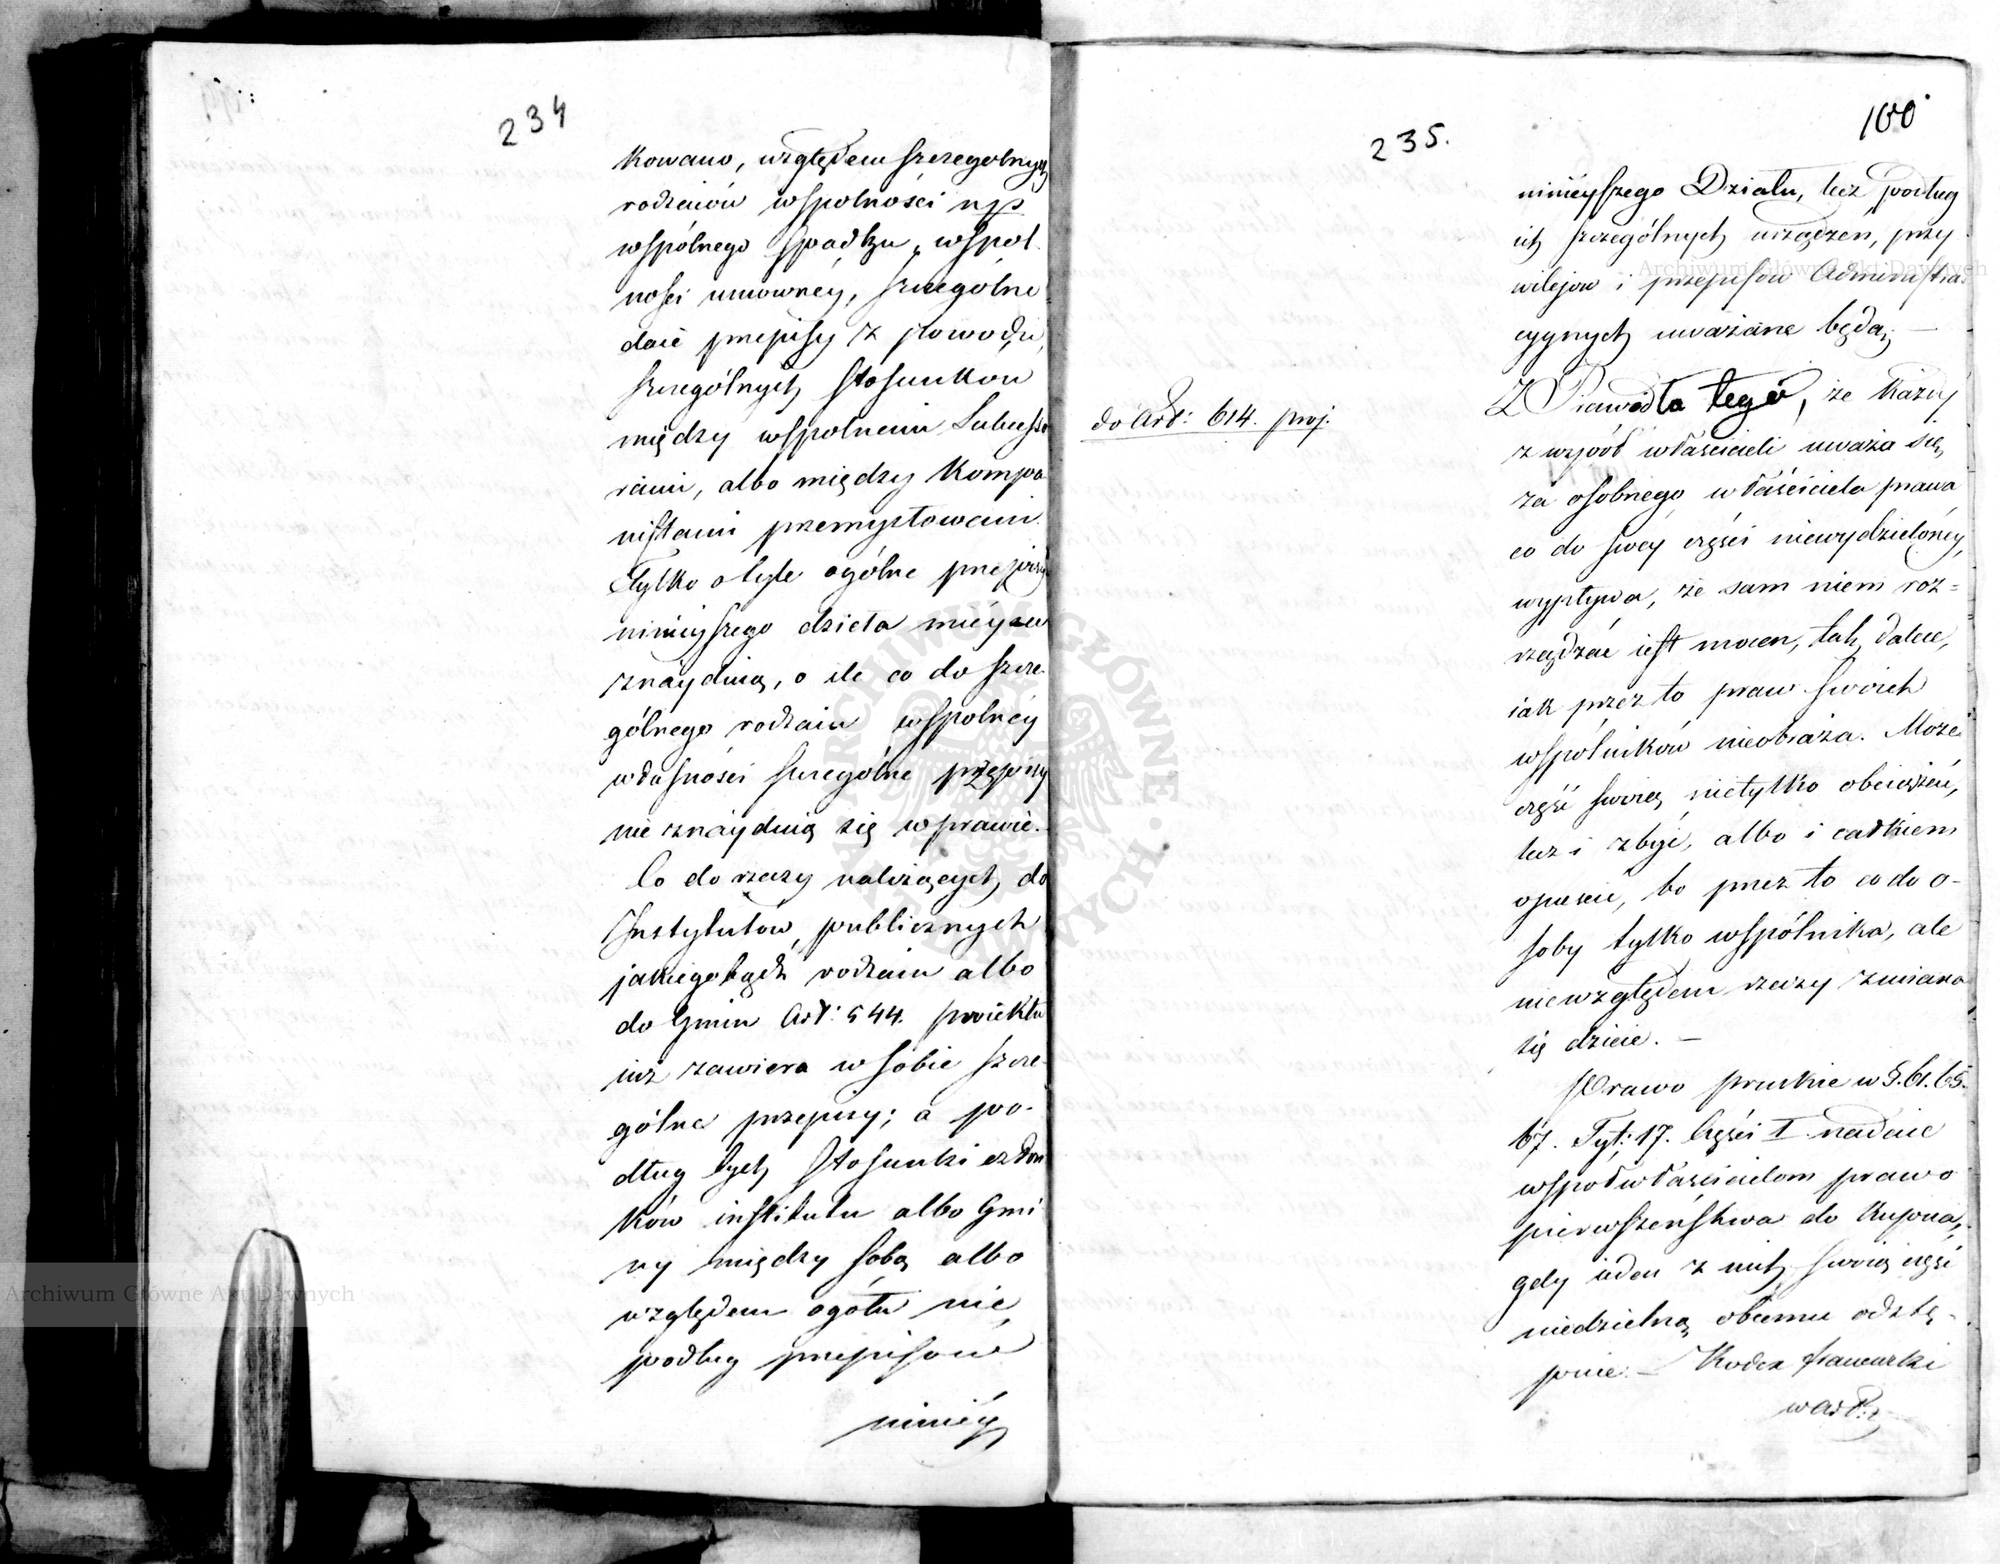 234
kowano, względem szczegolnych
rodzaiów wspolności np
wspólnego spadku, wspol-
ności umownéy, szczególne
daie przepisy z powodu
szczególnych stosunkow
między wspolnemi Sukcesso
rami, albo między Kompa
nistami przemysłowemi.
Tylko o tyle ogólne przepisy
ninieyszego dzieła mieysce
znayduią, o ile co do szcze
gólnego rodzaiu wspolnéy
własności szczególne przepisy
nie znayduią się w prawie.
Co do rzeczy należących do
Instytutow publicznych
jakiegobądź rodzaiu albo
do Gmin Art: 544. proiektu
iuż zawiera w sobie szcze-
gólne przepisy; a po-
dług tych stosunki człon
ków institutu albo Gmi
ny między sobą albo
względem ogółu nie
podług przepisow
niniéy
235.
100
ninieyszego Działu, lecz podług
ich szczególnych urządzeń, przy
wilejow i przepisow Administra-
cyynych uważane będą. —
do Art: 614. proj.
Z Prawidła tego, że każdy
z współ właścicieli uważa się
za osobnego właściciela prawa
co do swéy części niewydzielonéy,
wypływa, że sam niem roz-
rządzać iest mocen, tak dalece,
iak przez to praw swoich
wspólników nieobraża. Może
część swoią nietylko obciążeń,
lecz i zbyć, albo i całkiem
opuścić, bo przez to co do o-
soby tylko wspólnika, ale
nie względem rzeczy zmiana
się dzieie. —
Prawo pruskie w §. 61. 65.
67. Tyt: 17. Części I. nadaie
współwłaścicielom prawo
pierwszeństwa do kupna,
gdy ieden z nich swoią część
niedzielną obcemu odstę-
puie. — Kodex francuzki
w Art:
Archiwum Główne Akt Dawnych
Archiwum Główne Akt Dawnych
ARCHIWUM GŁÓWNE AKT DAWNYCH